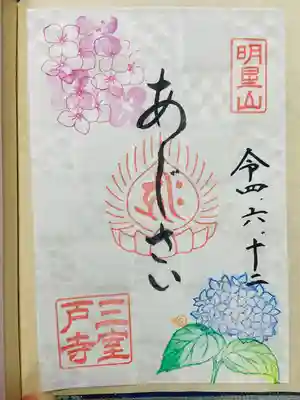 明星山
令四.六.十二
あじさい
三室
戸寺